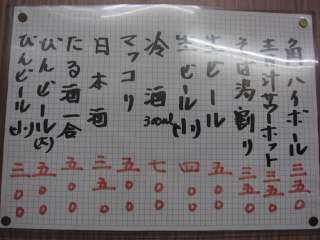 角ハイボール 三五〇
青汁サワーホット 三五〇
そば湯割り 三五〇
生ビール 五〇〇
生ビール(小) 四〇〇
冷酒 300ml 七〇〇
マッコリ 五〇〇
日本酒 三五〇
たる酒一合 五〇〇
びんビール(大) 五〇〇
びんビール(小) 三〇〇